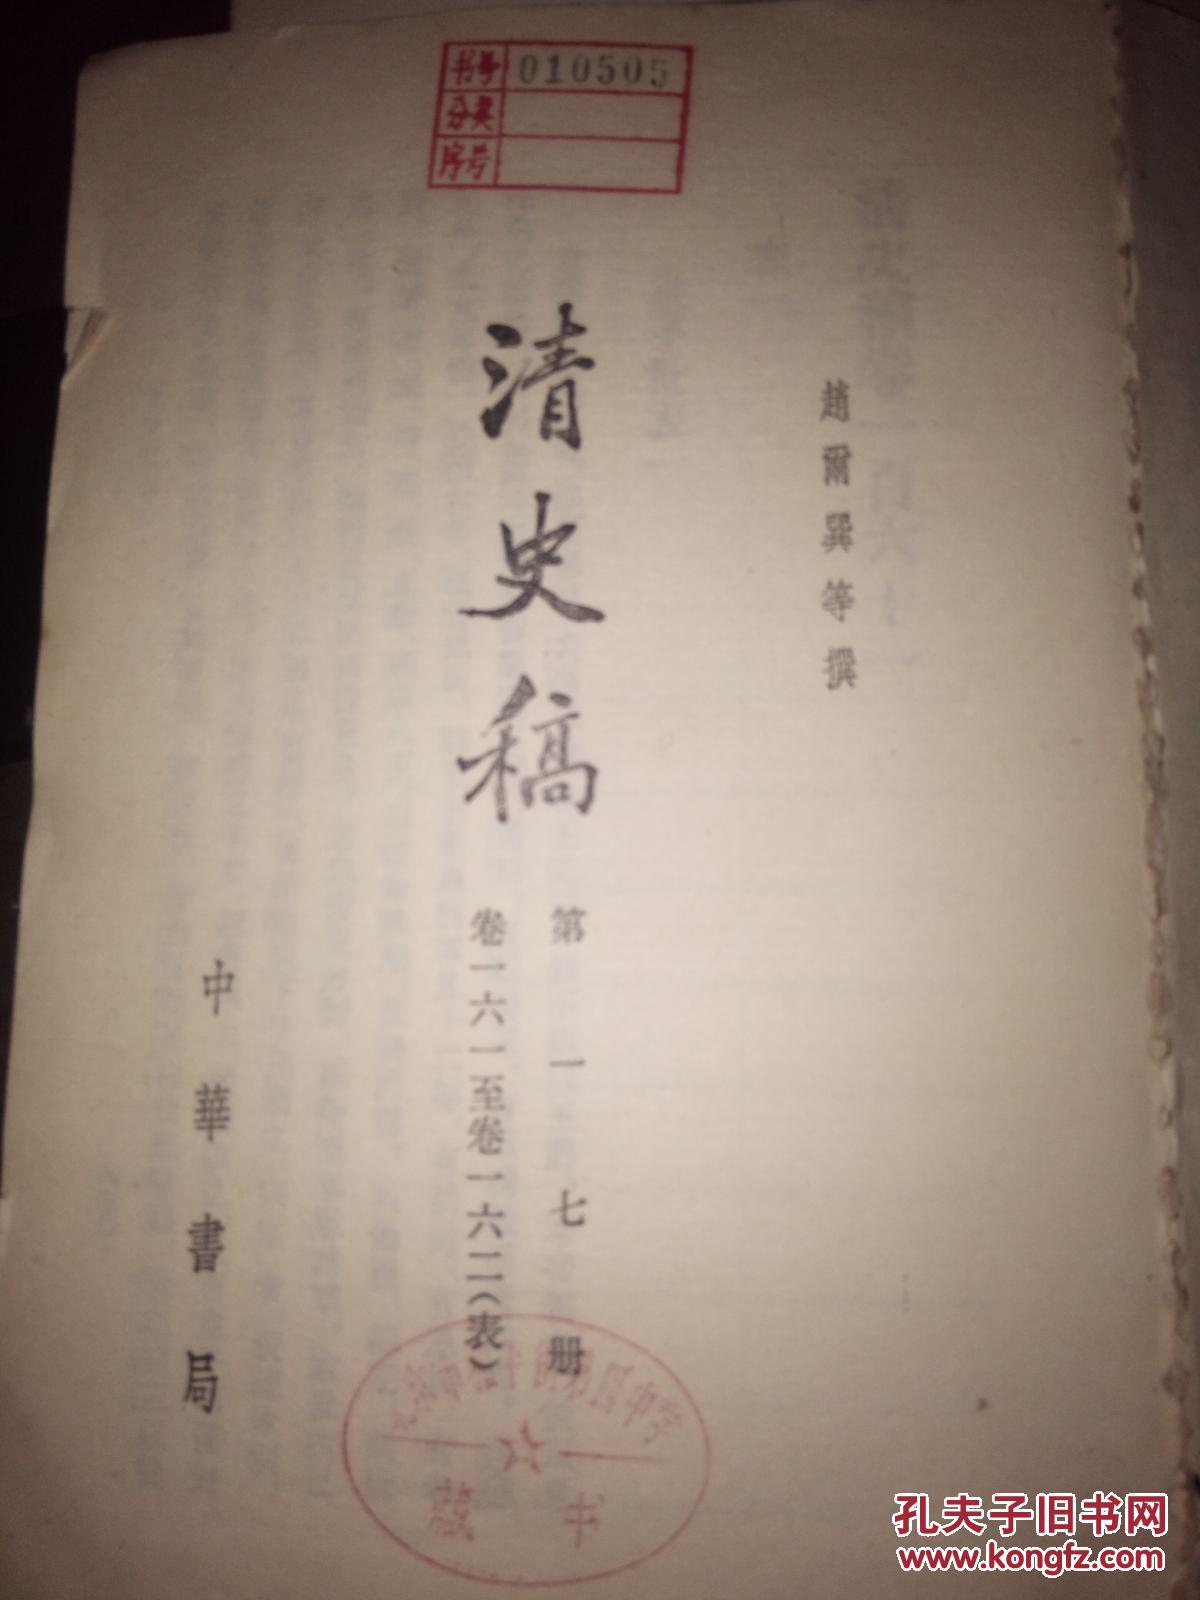 书号 010505
分类
序号
趙爾巽等撰
清史稿
第一七册
卷一六一至卷一六二(表)
中華書局
中学
藏书
孔夫子旧书网
www.kongfz.com